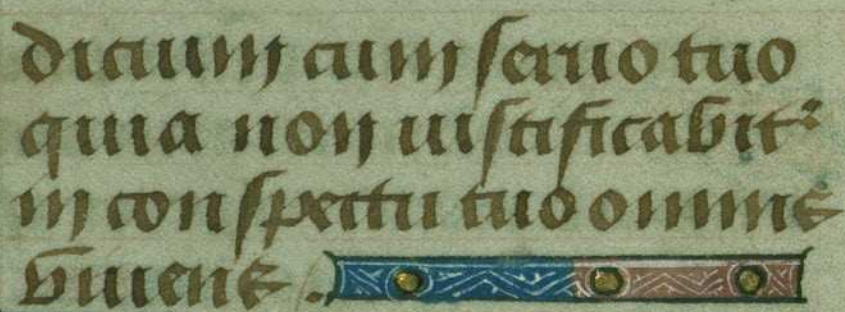 dicium cum seruo tuo
quia non iustificabit²
in conspectu tuo omnis
viuens .